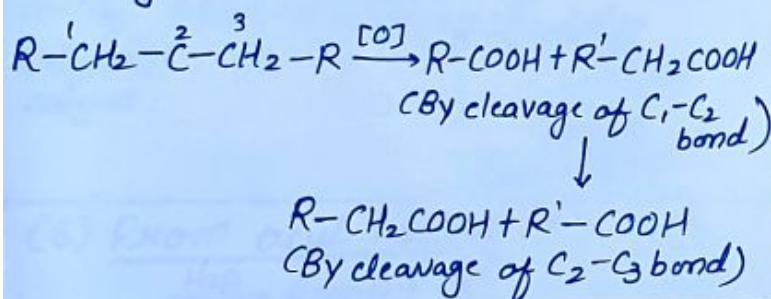 R-¹CH₂-²C-³CH₂-R [O]→ R-COOH + R'-CH₂COOH
(By cleavage of C₁-C₂ bond)
↓
R-CH₂COOH + R'-COOH
(By cleavage of C₂-C₃ bond)